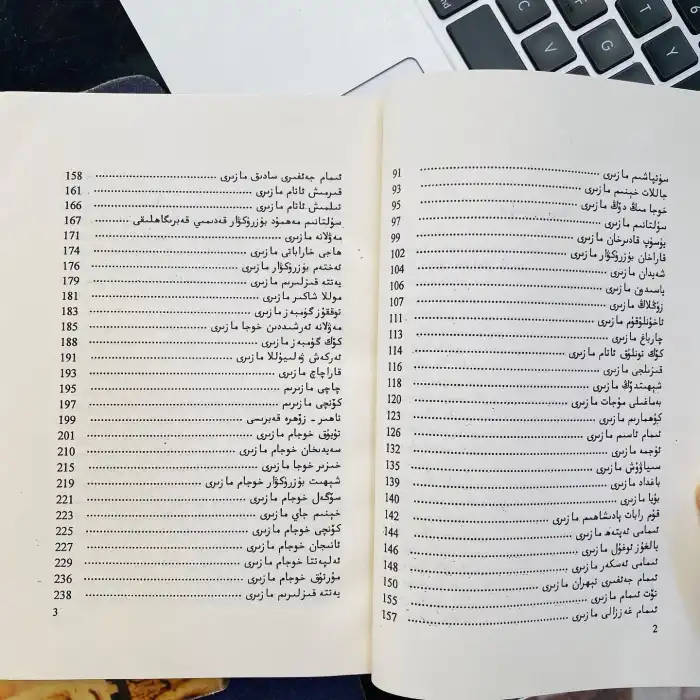 سۇتپاشىم مازىرى 91
جاللات خېنىم مازىرى 93
خوجا مىڭ دۇڭ مازىرى 95
سۇلتانىم مازىرى 97
يۈسۈپ قادىرخان مازىرى 99
قاراخان بۇزرۇكۋار مازىرى 102
شەيدان مازىرى 104
ياسىدۇن مازىرى 106
زۇڭلاڭ مازىرى 107
ئاخۇنلۇقۇم مازىرى 111
چارباغ مازىرى 113
كۆك تونلۇق ئاتام مازىرى 114
قىزىلجى مازىرى 116
شېھىتدۇڭ مازىرى 118
بەماغىلى مۇجات مازىرى 120
كۇھمارىم مازىرى 123
ئىمام ئاسىم مازىرى 126
ئۈجمە مازىرى 132
سىياۋۇش مازىرى 135
باغداد مازىرى 139
بۇيا مازىرى 140
قۇم رابات پادىشاھىم مازىرى 142
ئىمامى ئەپتەھ مازىرى 144
يالغۇز ئوغۇل مازىرى 146
ئىمامى ئەسكەر مازىرى 148
ئىمام جەئفىرى تېھران مازىرى 150
تۆت ئىمام مازىرى 155
ئىمام غەززالى مازىرى 157
2
ئىمام جەئفىرى سادىق مازىرى 158
قىرمىش ئاتام مازىرى 161
ئىلمىش ئاتام مازىرى 166
سۇلتانىم مەھمۇد بۇزرۇكۋار قەدىمىي قەبرىگاھلىقى 167
مەۋلانە مازىرى 171
ھاجى خاراباتى مازىرى 174
ئەختەم بۇزرۇكۋار مازىرى 176
يەتتە قىزلىرىم مازىرى 179
موللا شاكىر مازىرى 181
توققۇز گۈمبەز مازىرى 183
مەۋلانە ئەرشىددىن خوجا مازىرى 185
كۆك گۈمبەز مازىرى 188
ئەركەش ۋەلىيۇللا مازىرى 191
قاراچاچ مازىرى 193
چاچى مازىرىم 195
كۆنچى مازىرىم 197
تاھىر ـ زۆھرە قەبرىسى 199
تۇيۇق خوجام مازىرى 201
سەيدىخان خوجام مازىرى 210
خىزىر خوجا مازىرى 215
شېھىت بۇزرۇكۋار خوجام مازىرى 219
سۆگەل خوجام مازىرى 221
خېنىم جاي مازىرى 223
كۆنچى خوجام مازىرى 225
ئانىجان خوجام مازىرى 227
ئەلپەتتا خوجام مازىرى 229
مۇرتۇق خوجام مازىرى 236
يەتتە قىزلىرىم مازىرى 238
3